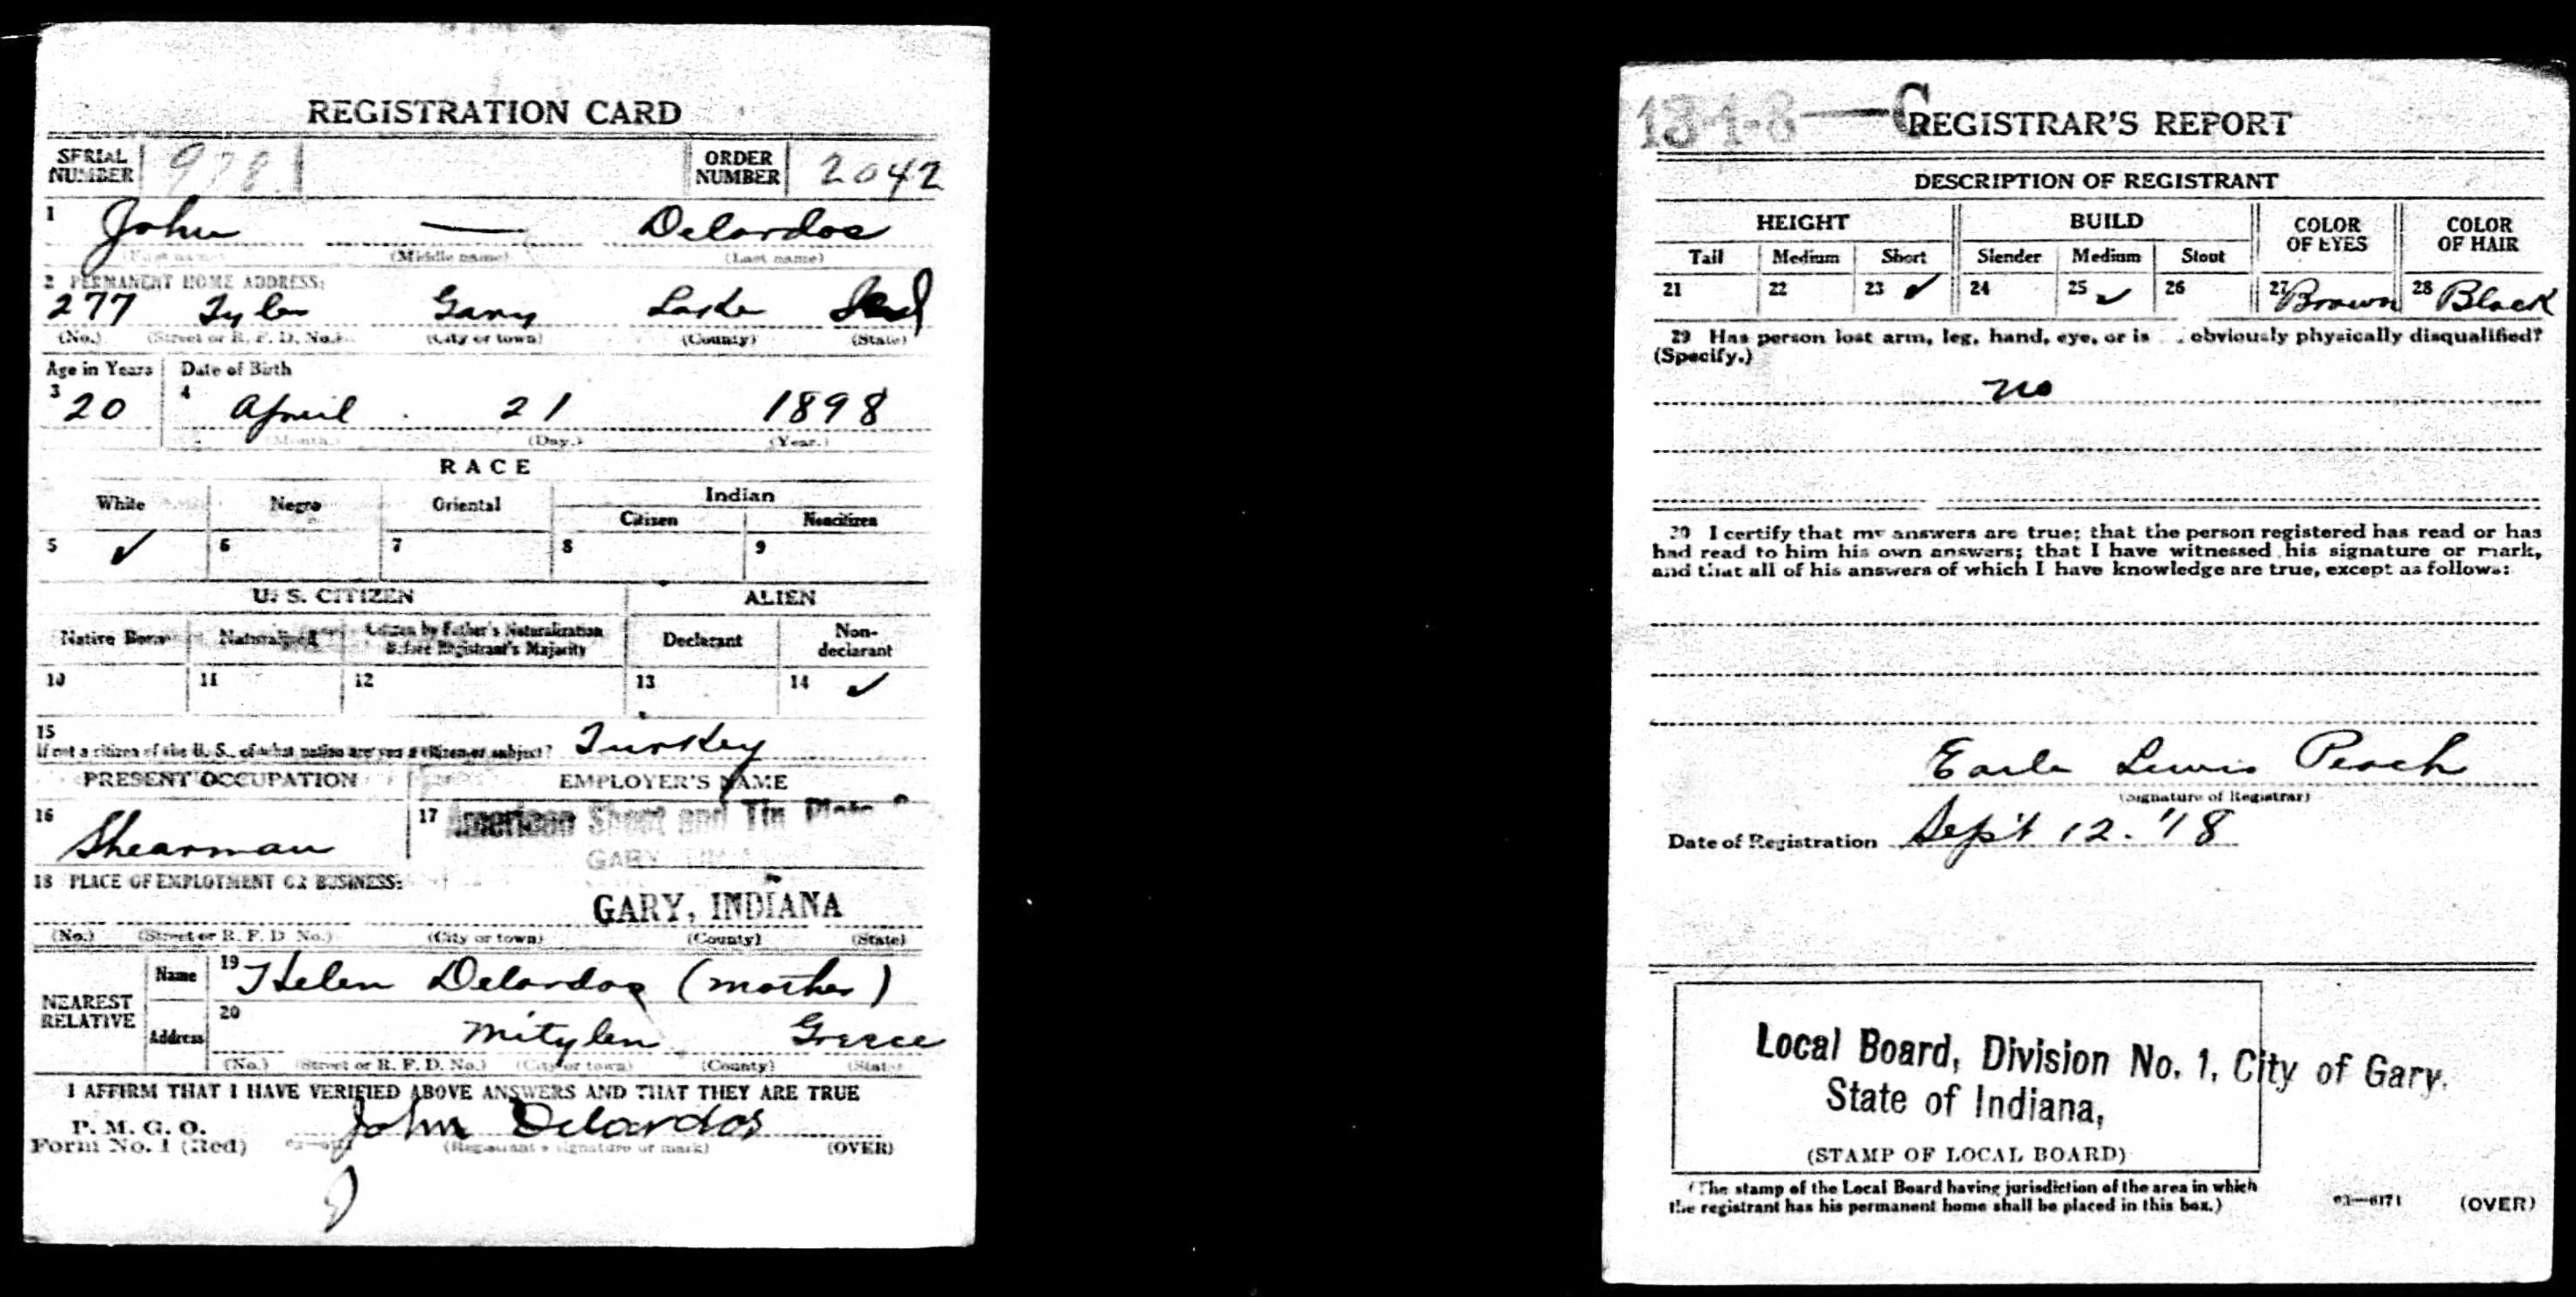 REGISTRATION CARD
SERIAL NUMBER 978 ORDER NUMBER 2042
1 John — Delardos
(First name) (Middle name) (Last name)
2 PERMANENT HOME ADDRESS:
277 Tyler Gary Lake Ind
(No.) (Street or R. F. D. No.) (City or town) (County) (State)
Age in Years Date of Birth
3 20 4 April 21 1898
(Month.) (Day.) (Year.)
RACE
White Negro Oriental Indian
Citizen Noncitizen
5 ✓ 6 7 8 9
U. S. CITIZEN ALIEN
Native Born Naturalized Citizen by Father's Naturalization Before Registrant's Majority Declarant Non-declarant
10 11 12 13 14 ✓
15
If not a citizen of the U. S., of what nation are you a citizen or subject? Turkey
PRESENT OCCUPATION EMPLOYER'S NAME
16 Shearman 17 American Sheet and Tin Plate
GARY
18 PLACE OF EMPLOYMENT OR BUSINESS:
GARY, INDIANA
(No.) (Street or R. F. D. No.) (City or town) (County) (State)
NEAREST RELATIVE
Name 19 Helen Delardos (mother)
Address 20 Mitylen Greece
(No.) (Street or R. F. D. No.) (City or town) (County) (State)
I AFFIRM THAT I HAVE VERIFIED ABOVE ANSWERS AND THAT THEY ARE TRUE
P. M. G. O.
Form No. 1 (Red) John Delardos
(Registrant's signature or mark) (OVER)
13-1-8—C
REGISTRAR'S REPORT
DESCRIPTION OF REGISTRANT
HEIGHT BUILD COLOR OF EYES COLOR OF HAIR
Tall Medium Short Slender Medium Stout
21 22 23 ✓ 24 25 ✓ 26 27 Brown 28 Black
29 Has person lost arm, leg, hand, eye, or is obviously physically disqualified?
(Specify.)
no
30 I certify that my answers are true; that the person registered has read or has
had read to him his own answers; that I have witnessed his signature or mark,
and that all of his answers of which I have knowledge are true, except as follows:
Earle Lewis Peach
(Signature of Registrar)
Date of Registration Sept 12. '18
Local Board, Division No. 1, City of Gary.
State of Indiana,
(STAMP OF LOCAL BOARD)
(The stamp of the Local Board having jurisdiction of the area in which
the registrant has his permanent home shall be placed in this box.)
03—6171 (OVER)